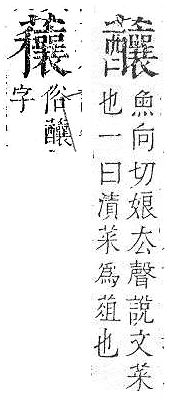 䖆
魚向切娘厺聲說文菜
也一曰漬菜爲葅也
俗䖆
字